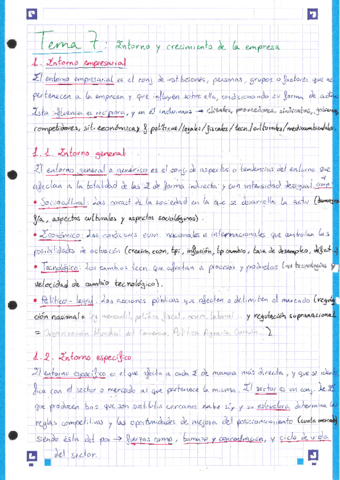 Tema 7: Entorno y crecimiento de la empresa
1. Entorno empresarial
El entorno empresarial es el conj. de instituciones, personas, grupos o factores que no
pertenecen a la empresa y que influyen sobre ella, condicionando su forma de actuar.
Esta influencia es recíproca, y en él incluimos → clientes, proveedores, sindicatos, gobierno,
competidores, sit. económicas y políticas/legales/fiscales/tecn./culturales/medioambientales
1.1. Entorno general
El entorno general o genérico es el conj. de aspectos o tendencias del entorno que
afectan a la totalidad de las E de forma indirecta y con intensidad desigual
• Sociocultural: Las caract. de la sociedad en la que se desarrolla la activ.
fía, aspectos culturales y aspectos sociológicos).
• Económico: Las condiciones econ. nacionales e internacionales que controlan las
posibilidades de actuación (crecim. econ, tpi, inflación, tp cambio, tasa de desempleo,
• Tecnológico: Los cambios tecn. que afectan a procesos y productos (las tecnologías y
velocidad de cambio tecnológico).
• Político-legal: Las acciones públicas que afectan o delimitan el mercado (regula
ción nacional = ley mercantil, política fiscal, norm. laboral... y regulación supranacional
= Organización Mundial del Comercio, Política Agraria Común...)
1.2. Entorno específico
El entorno específico es el que afecta a cada E de manera más directa, y que se identi
fica con el sector o mercado al que pertenece la misma. El sector es un conj. de E
que producen bns que son sustitutivos cercanos entre sí, y su estructura determina las
reglas competitivas y las oportunidades de mejora del posicionamiento (cuota mercado)
siendo ésta def. por → fuerzas comp., tamaño y concentración, y ciclo de vida
del sector.